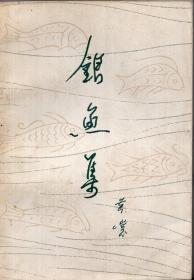 銀魚集
黄裳